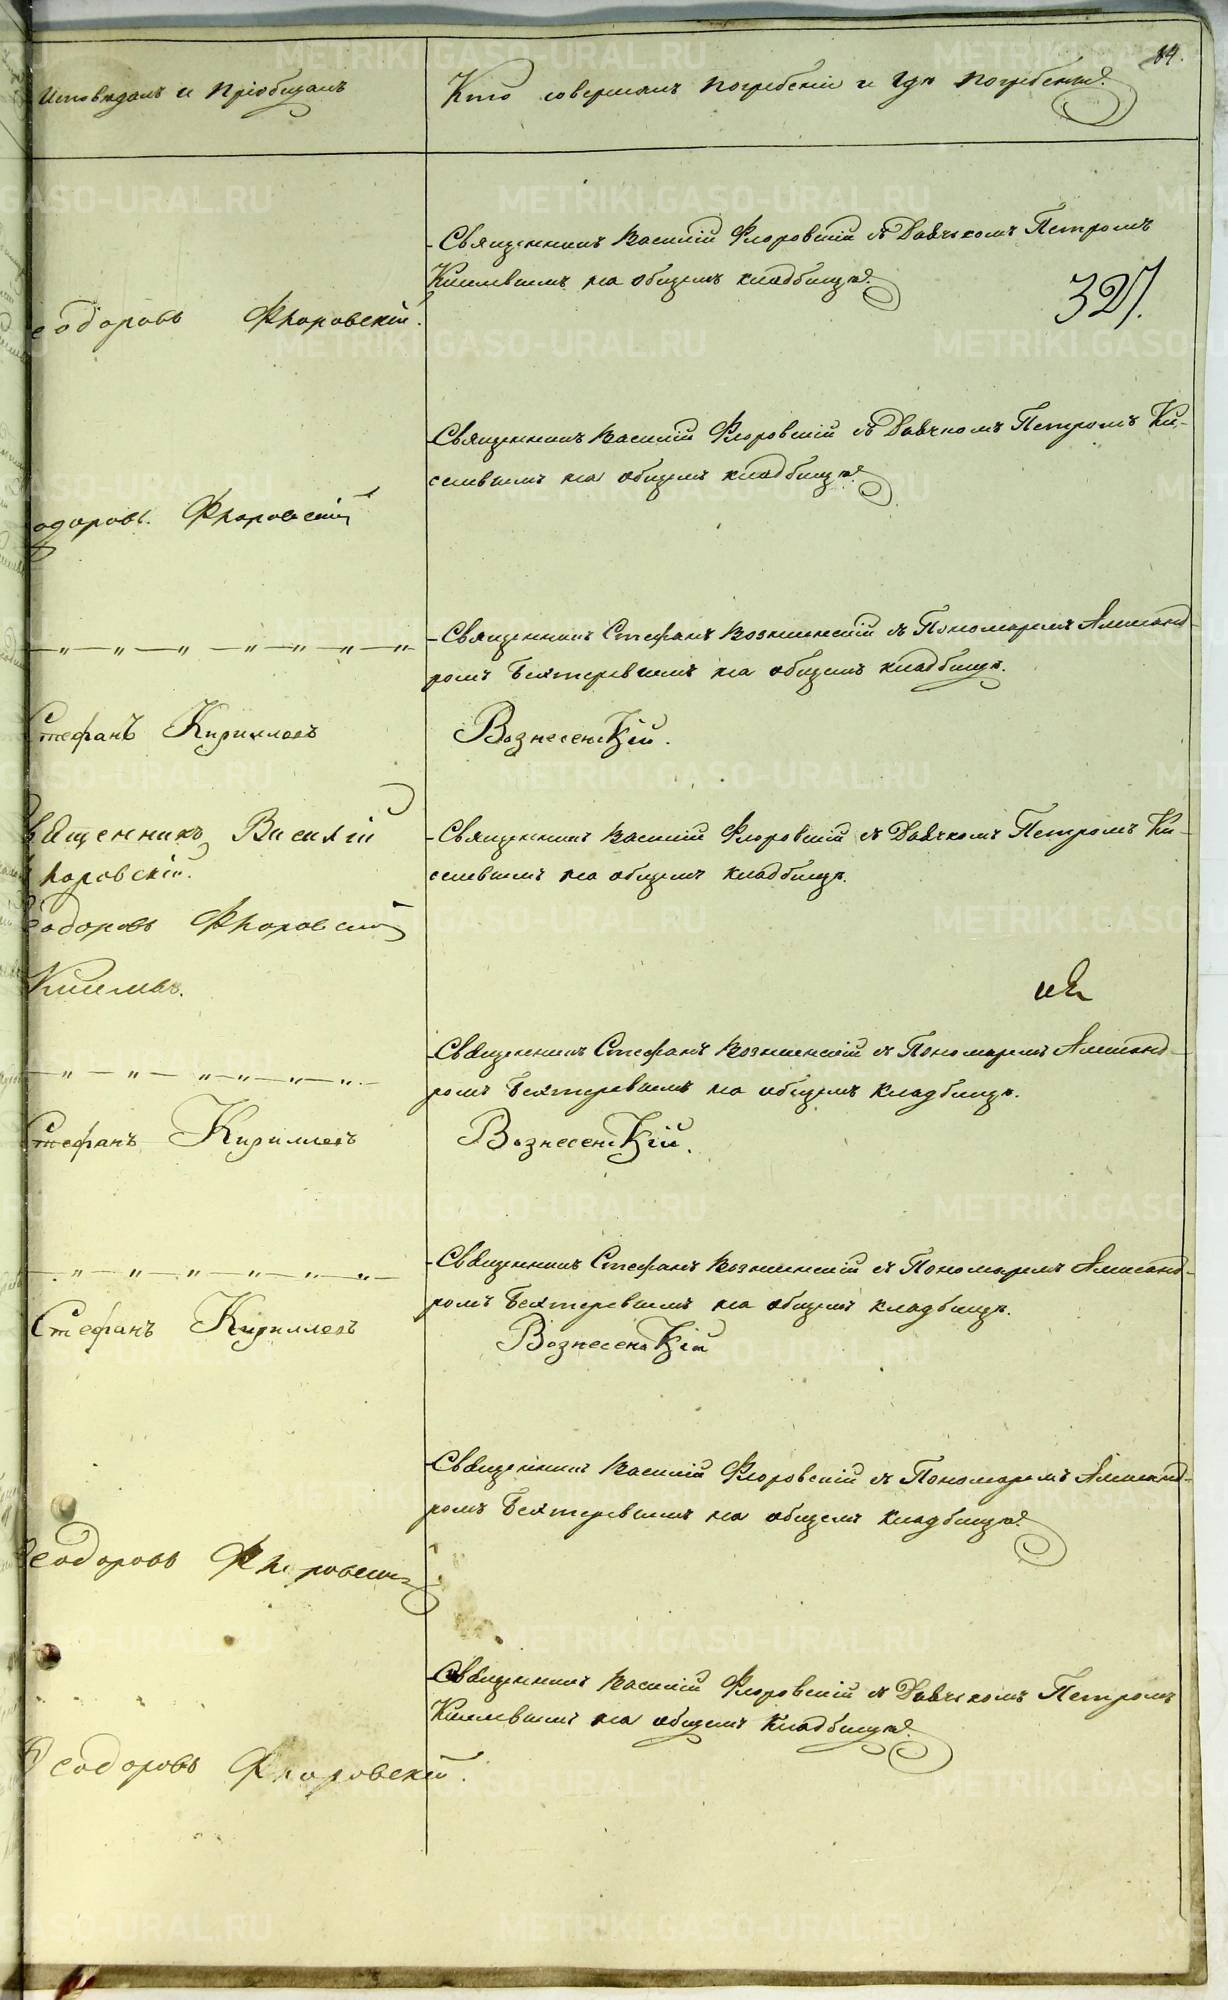 64.
исповѣдалъ и пріобщалъ
Кто совершалъ погребеніе и гдѣ погребены.
Священникъ Василій Флоровскій съ Дьячкомъ Петромъ
Киселевымъ на общемъ кладбищѣ.
327.
еодоровъ Флоровскій.
Священникъ Василій Флоровскій съ Дьячкомъ Петромъ Ки-
селевымъ на общемъ кладбищѣ.
одоровъ. Флоровскій
Священникъ Стефанъ Вознесенскій съ Пономаремъ Александ-
ромъ Бехтеревымъ на общемъ кладбищѣ.
— „ — „ — „ — „ — „ — „ — „
Стефанъ Кирилловъ Вознесенскій.
вященникъ Василій
лоровскій.
Священникъ Василій Флоровскій съ Дьячкомъ Петромъ Ки-
селевымъ на общемъ кладбищѣ.
еодоровъ Флоровскій
Киселевъ.
Священникъ Стефанъ Вознесенскій съ Пономаремъ Александ-
ромъ Бехтеревымъ на общемъ кладбищѣ.
— „ — „ — „ — „ — „ — „ —
Стефанъ Кирилловъ Вознесенскій.
Священникъ Стефанъ Вознесенскій съ Пономаремъ Александ-
ромъ Бехтеревымъ на общемъ кладбищѣ.
— „ — „ — „ — „ — „ — „ —
Стефанъ Кирилловъ Вознесенскій
Священникъ Василій Флоровскій съ Пономаремъ Александ-
ромъ Бехтеревымъ на общемъ кладбищѣ.
еодоровъ Флоровскій
Священникъ Василій Флоровскій съ Дьячкомъ Петромъ
Киселевымъ на общемъ кладбищѣ.
Ѳеодоровъ Флоровскій.
METRIKI.GASO-URAL.RU